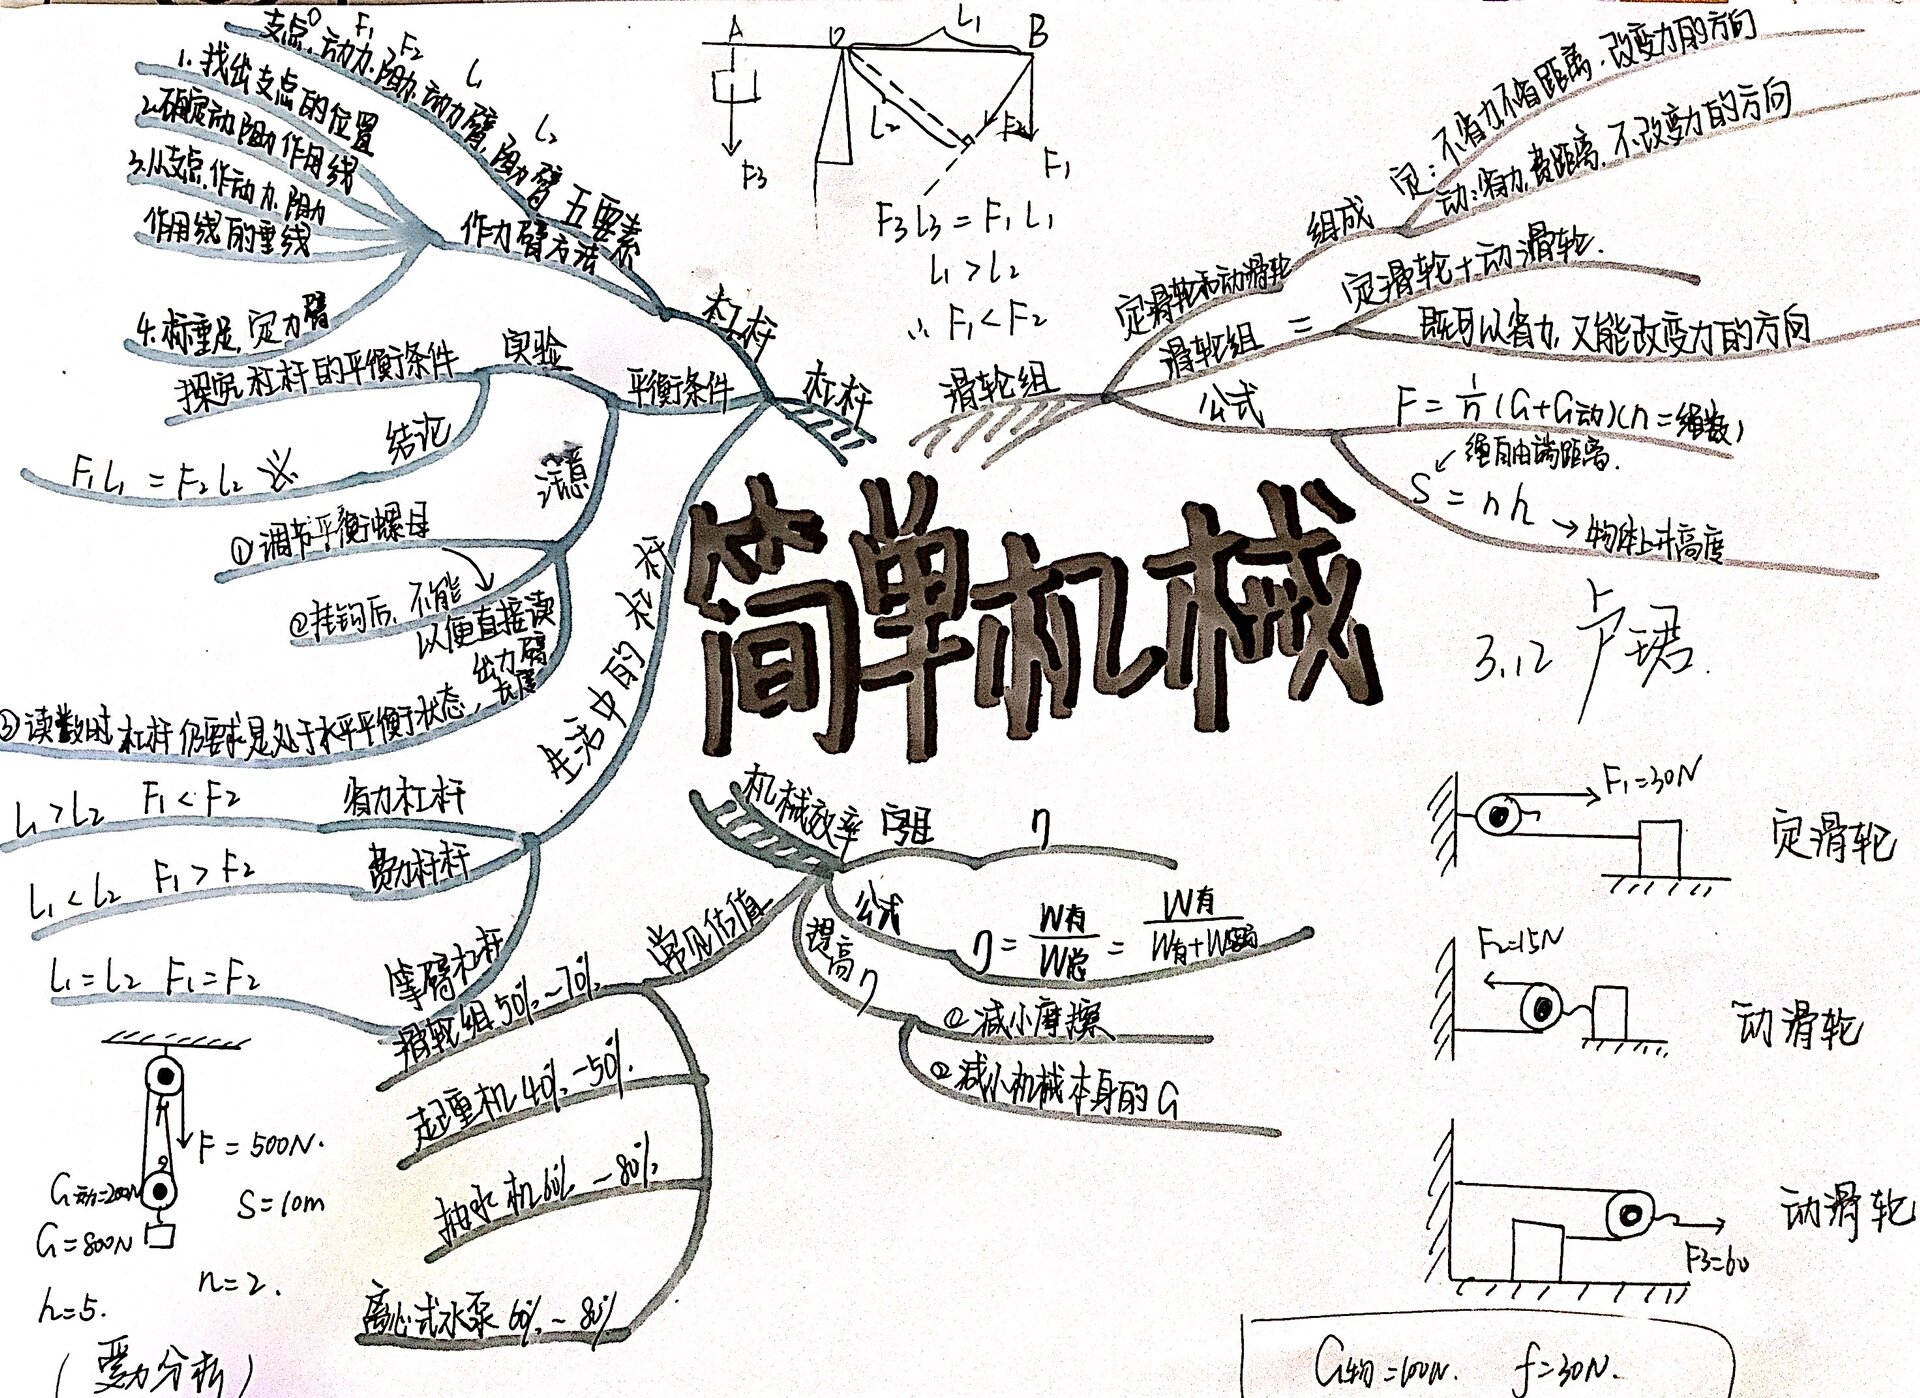 简单机械
3.12 卢珺.
杠杆
杠杆
五要素
支点O.动力F1.阻力F2.动力臂L1.阻力臂L2
作力臂方法
1.找出支点的位置
2.确定动.阻力作用线
3.从支点.作动力.阻力
作用线的垂线
4.标垂足,定力臂
平衡条件
实验
探究杠杆的平衡条件
结论
F1L1=F2L2
注意
①调节平衡螺母
②挂钩后,不能
以便直接读
出力臂
长度
③读数时杠杆仍要求是处于水平平衡状态,
生活中的杠杆
省力杠杆
L1>L2 F1<F2
费力杠杆
L1<L2 F1>F2
等臂杠杆
L1=L2 F1=F2
A
O
L1
B
L2
F2
F3
F1
F3L3=F1L1
L1>L2
∴F1<F2
滑轮组
定滑轮和动滑轮
组成
定:不省力不省距离.改变力的方向
动:省力,费距离.不改变力的方向
滑轮组=
定滑轮+动滑轮.
既可以省力,又能改变力的方向
公式
F=1/n(G+G动)(n=绳数)
绳自由端距离.
S=nh
→物体上升高度
机械效率
η
公式
η=W有/W总=W有/W有+W额
提高η
①减小摩擦
②减小机械本身的G
常见估值
滑轮组50%~70%
起重机40%-50%.
抽水机60%~80%
离心式水泵60%~80%
F=500N.
G动=200N
S=10m
G=800N
n=2.
h=5.
(受力分析)
F1=30N
定滑轮
F2=15N
动滑轮
动滑轮
F3=60
G物=100N. f=30N.